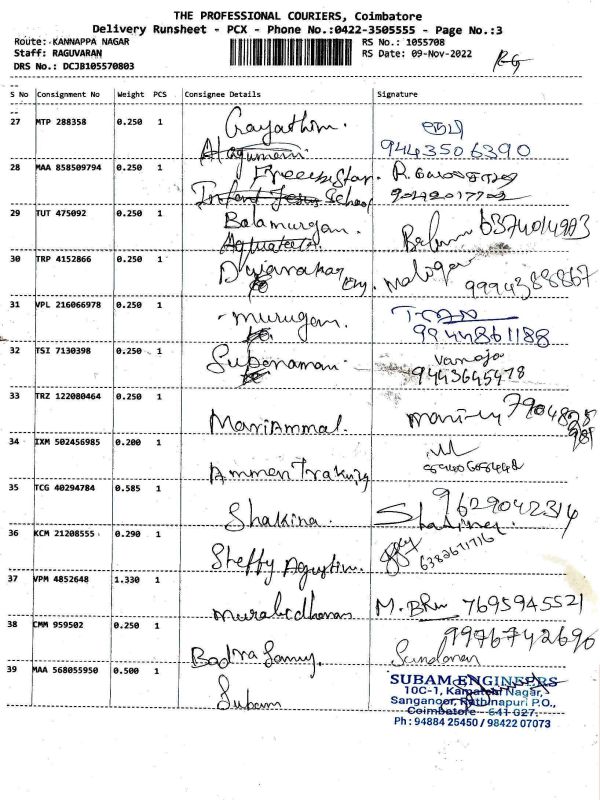 THE PROFESSIONAL COURIERS, Coimbatore
Delivery Runsheet - PCX - Phone No.:0422-3505555 - Page No.:3
Route: KANNAPPA NAGAR RS No.: 1055708
Staff: RAGUVARAN RS Date: 09-Nov-2022
DRS No.: DCJB105570803
S No Consignment No Weight PCS Consignee Details Signature
27 MTP 288358 0.250 1 Gayathri.
9443506390
28 MAA 858509794 0.250 1
Infant Jesus School
29 TUT 475092 0.250 1 Balamurugan. 6374014983
30 TRP 4152866 0.250 1
31 VPL 216066978 0.250 1 murugan.
9944861188
32 TSI 7130398 0.250 1 Vanaja
9443645478
33 TRZ 122080464 0.250 1
MariAmmal.
34 IXM 502456985 0.200 1
Ammen
35 TCG 40294784 0.585 1 9629042314
Shakina.
36 KCM 21208555 0.290 1
Steffy Agustin.
37 VPM 4852648 1.330 1
M. 7695945521
38 CMM 959502 0.250 1 9976742690
Badra Samy.
39 MAA 568055950 0.500 1
Subam
SUBAM ENGINEERS
10C-1, Kamatchi Nagar,
Sanganoor, Rathinapuri P.O.,
Coimbatore - 641 027.
Ph : 94884 25450 / 98422 07073